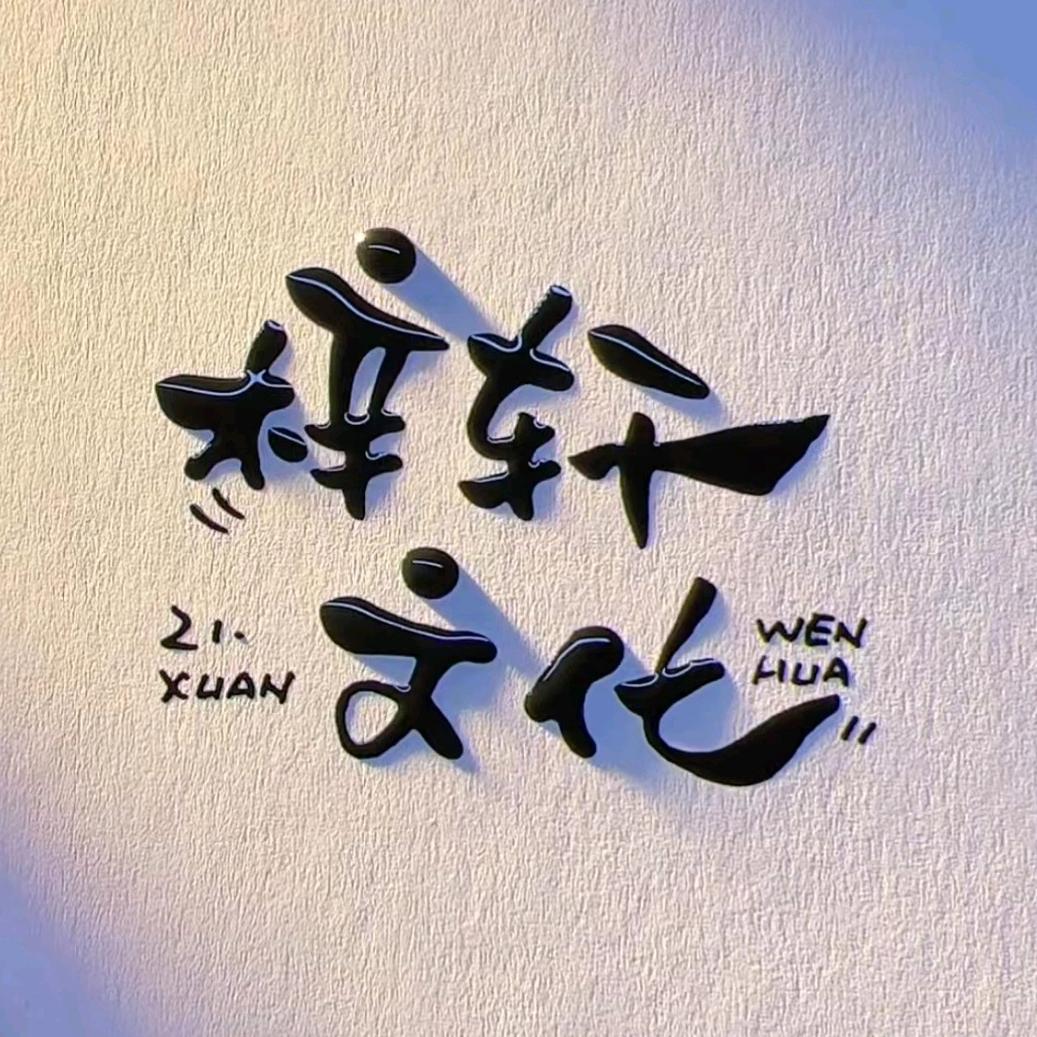 梓轩
文化
ZI.
XUAN
WEN
HUA